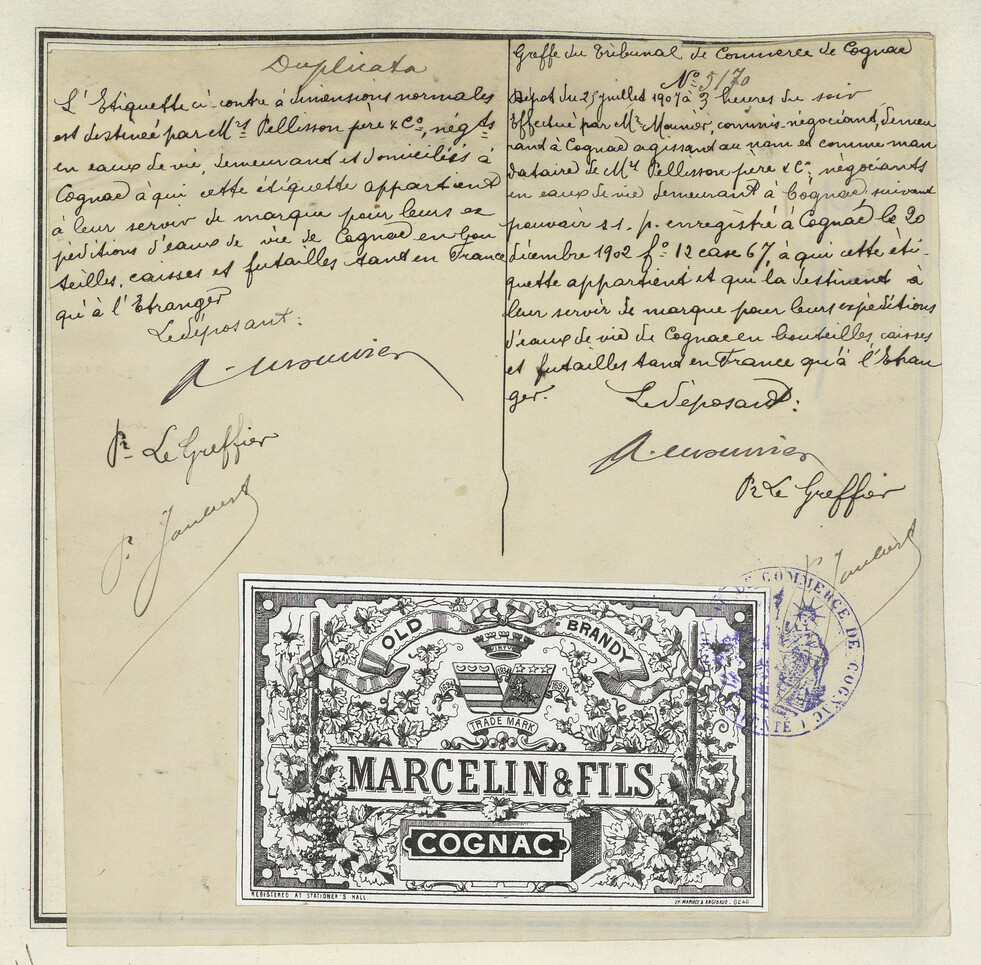 Duplicata
L'Etiquette ci contre à dimensions normales
est destinée par Mrs Pellisson père & Co, négts
en eaux de vie, demeurant et domiciliés à
Cognac à qui cette étiquette appartient
à leur servir de marque pour leurs ex
péditions d'eaux de vie de Cognac en bou
teilles, caisses et futailles tant en France
qu'à l'Etranger
Le déposant:
Pr Le Greffier
Greffe du Tribunal de Commerce de Cognac
No 5170
Dépot du 25 juillet 1907 à 3 heures du soir
Effectué par Mr Mounier, commis-négociant, demeu
rant à Cognac agissant au nom et comme man
dataire de Mrs Pellisson père & Co négociants
en eaux de vie demeurant à Cognac, suivant
pouvoir s.s. p. enregistré à Cognac le 20
décembre 1902 fo 12 case 67, à qui cette éti-
quette appartient et qui la destinent à
leur servir de marque pour leurs expéditions
d'eaux de vie de Cognac en bouteilles, caisses
et futailles tant en France qu'à l'Etran
ger.
Le déposant:
Pr Le Greffier
DE COMMERCE DE COGNAC
OLD BRANDY
TRADE MARK
MARCELIN & FILS
COGNAC
REGISTERED AT STATIONER'S HALL